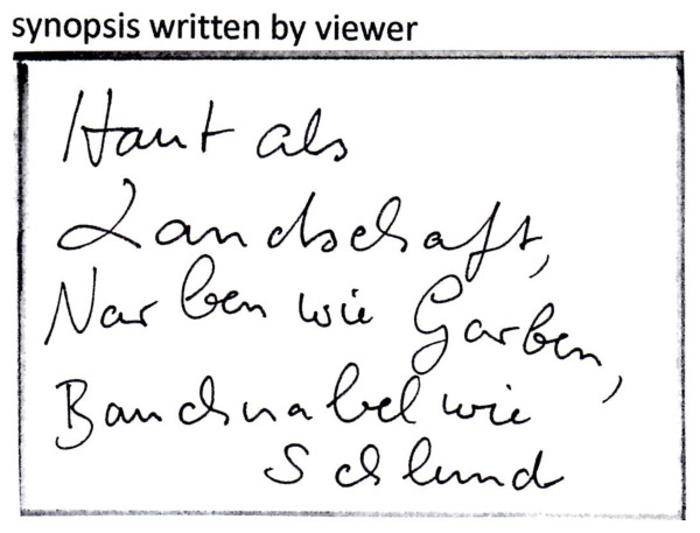 synopsis written by viewer
Haut als
Landschaft,
Narben wie Garben,
Bauchnabel wie
Schlund